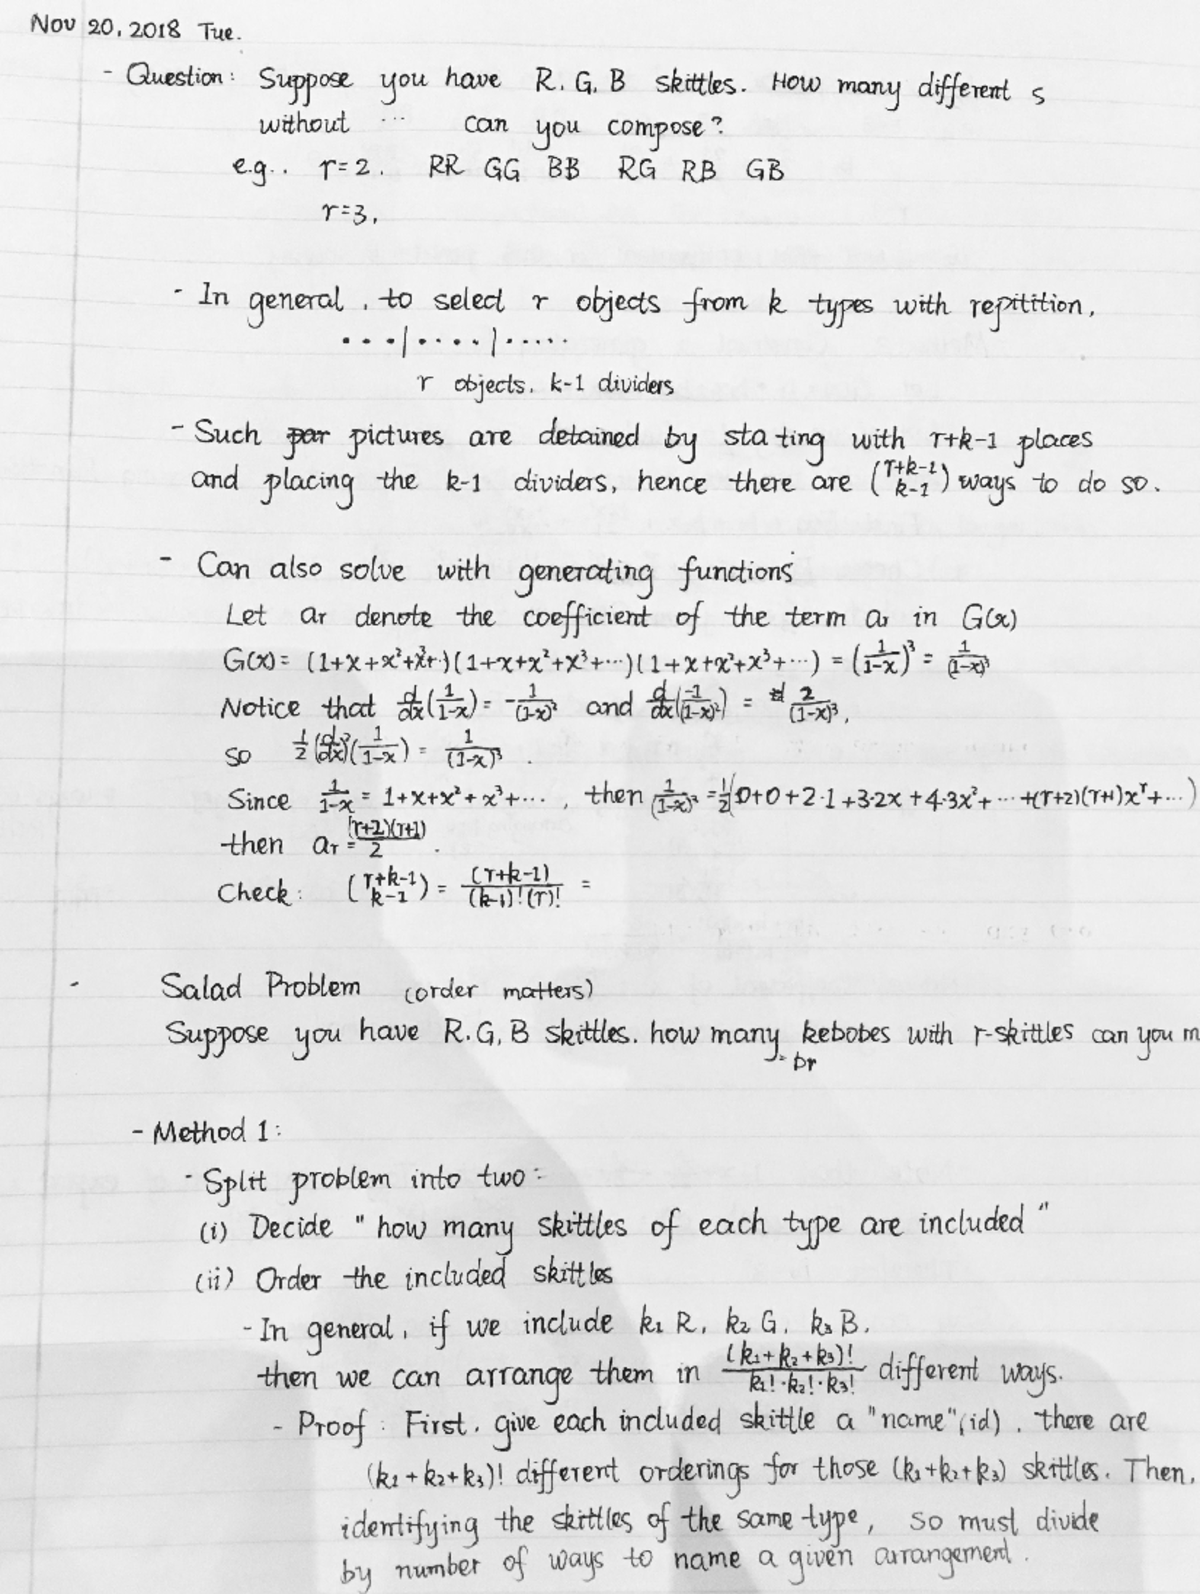 Nov 20, 2018 Tue.
- Question: Suppose you have R, G, B skittles. How many different s
without ... can you compose?
e.g.. r=2. RR GG BB RG RB GB
r=3,
- In general, to select r objects from k types with repitition,
•••|••••|•••••
r objects. k-1 dividers
- Such pictures are detained by stating with r+k-1 places
and placing the k-1 dividers, hence there are (r+k-1 k-1) ways to do so.
- Can also solve with generating functions
Let ar denote the coefficient of the term ar in G(x)
G(x) = (1+x+x²+x³+..)(1+x+x²+x³+...)(1+x+x²+x³+...) = (1/1-x)³ = 1/(1-x)³
Notice that d/dx(1/1-x) = -1/(1-x)² and d/dx(-1/(1-x)²) = 2/(1-x)³,
so 1/2 (d/dx)²(1/1-x) = 1/(1-x)³.
Since 1/1-x = 1+x+x²+x³+..., then 1/(1-x)³ = 1/2(0+0+2·1+3·2x+4·3x²+...+(r+2)(r+1)xʳ+...)
then ar = (r+2)(r+1)/2.
Check: (r+k-1 k-1) = (r+k-1)/(k-1)!(r)! =
- Salad Problem (order matters)
Suppose you have R, G, B skittles. how many kebobes with r-skittles can you m
= br
- Method 1:
- Split problem into two:
(i) Decide "how many skittles of each type are included"
(ii) Order the included skittles
- In general, if we include k₁ R, k₂ G, k₃ B,
then we can arrange them in (k₁+k₂+k₃)!/k₁!·k₂!·k₃! different ways.
- Proof: First, give each included skittle a "name" (id). there are
(k₁+k₂+k₃)! different orderings for those (k₁+k₂+k₃) skittles. Then,
identifying the skittles of the same type, so must divide
by number of ways to name a given arrangement.